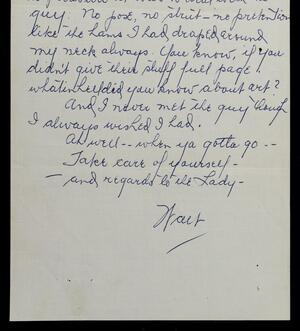 guy. No pose, no strut - no pretention
like the hams I had draped around
my neck always. You know, if you
didn't give their stuff full page!
what'nhell did you know about art?
And I never met the guy though
I always wished I had.
Ah well -- when ya gotta go --
Take care of yourself -
- and regards to the Lady -
Walt